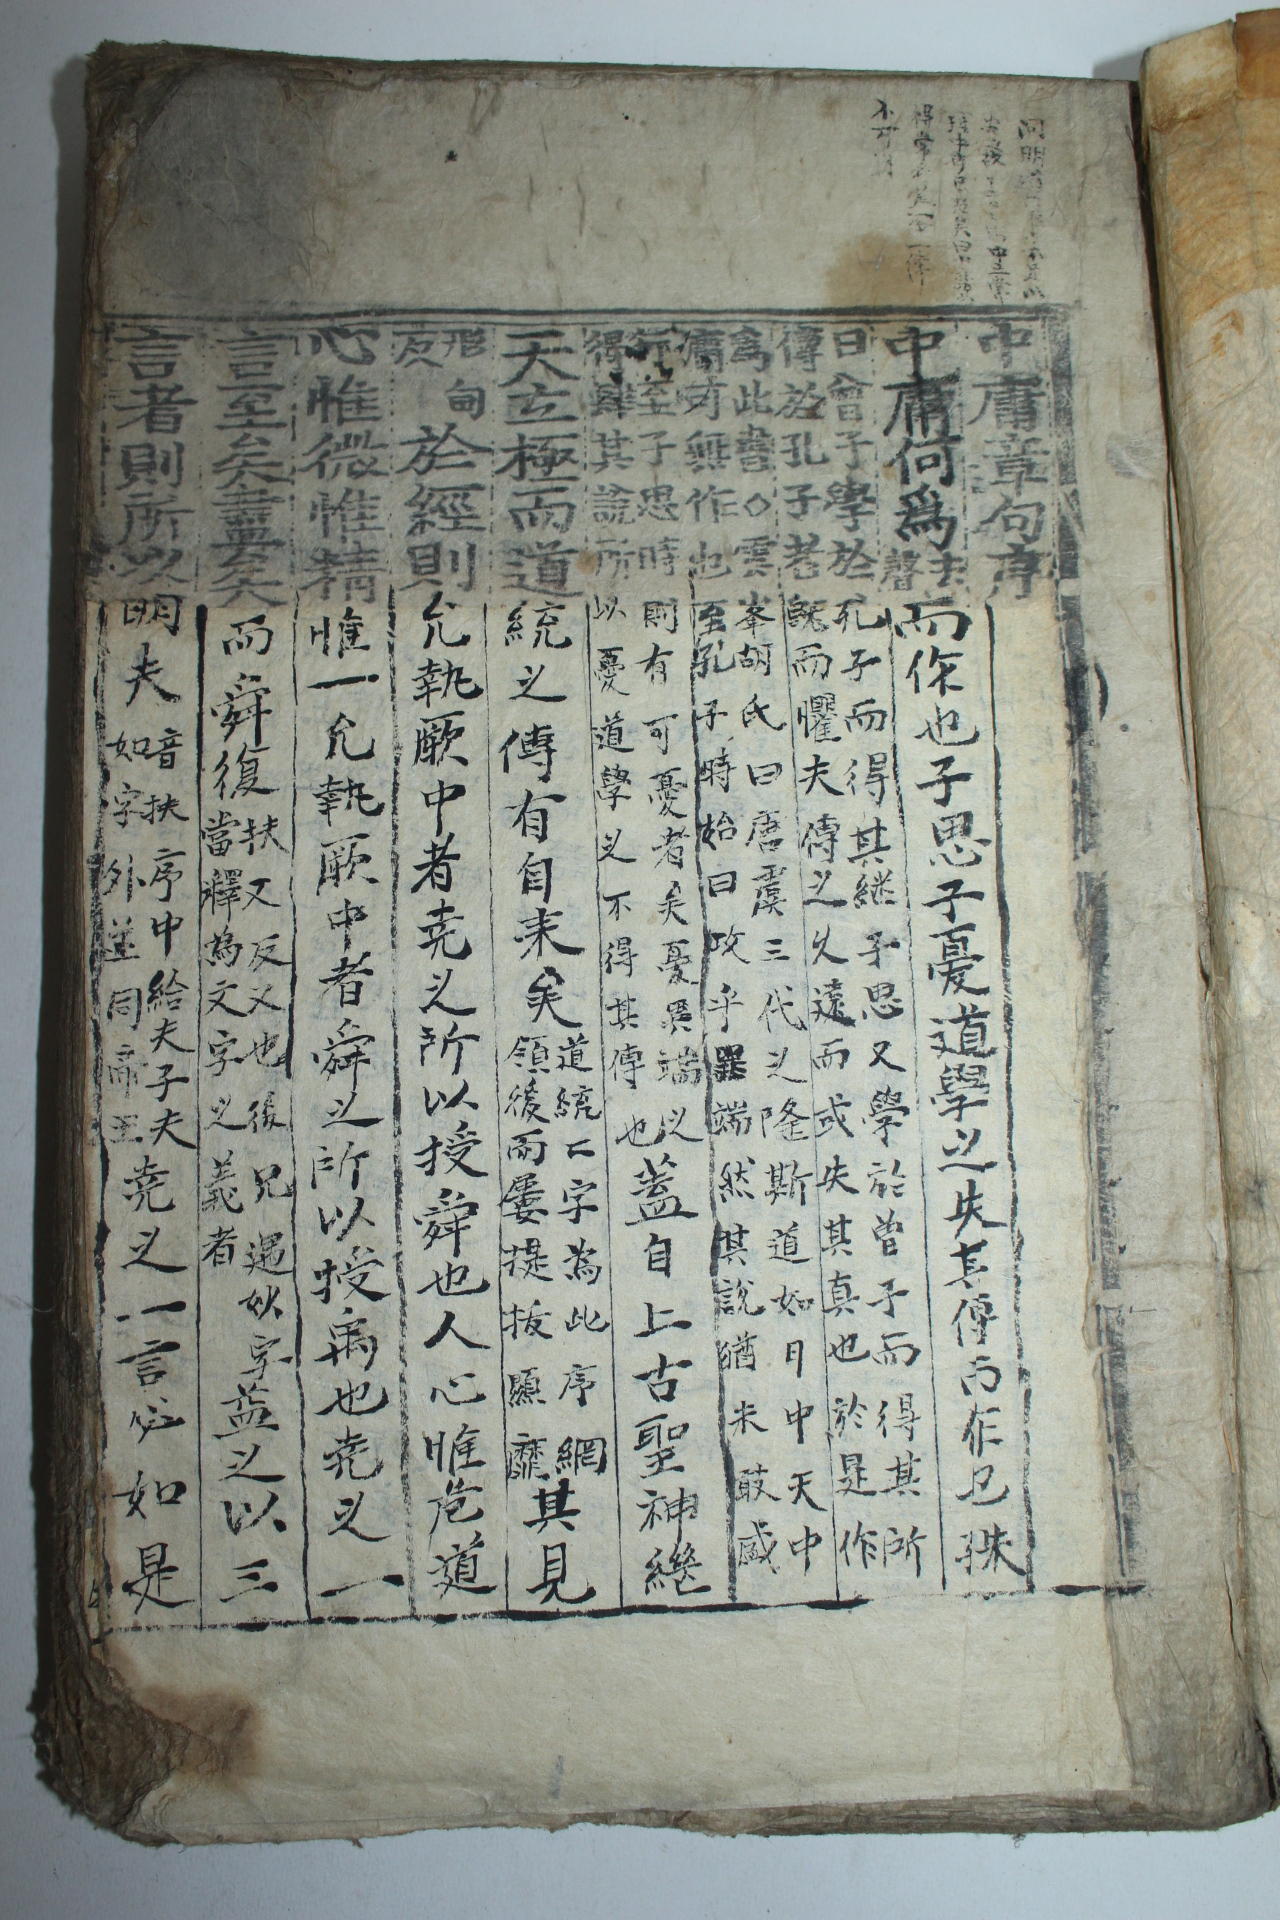 中庸章句序
中庸何爲
去聲
而作也子思子憂道學之失其傳而作也珠
曰曾子學於孔子而得其継子思又學於曾子而得其所
傳於孔子者旣而懼夫傳之久遠而或失其真也於是作
爲此書○雲峯胡氏曰唐虞三代之隆斯道如日中天中
庸可無作也至孔子時始曰攻乎異端然其說猶未敢盛
行至子思時則有可憂者矣憂異端以
得肆其說所以憂道學之不得其傳也
蓋自上古聖神継
天立極而道統之傳有自来矣
道統二字為此序網
領後而屢提拔顯靡
其見
形甸
反
於經則允執厥中者尭之所以授舜也人心惟危道
心惟微惟精惟一允執厥中者舜之所以授禹也尭之一
言至矣盡矣而舜復
扶又反又也後凡遇此字
當釋為文字之義者
益之以三
言者則所以明夫
音扶序中給夫子夫
如字外並同帝王
尭之一言必如是